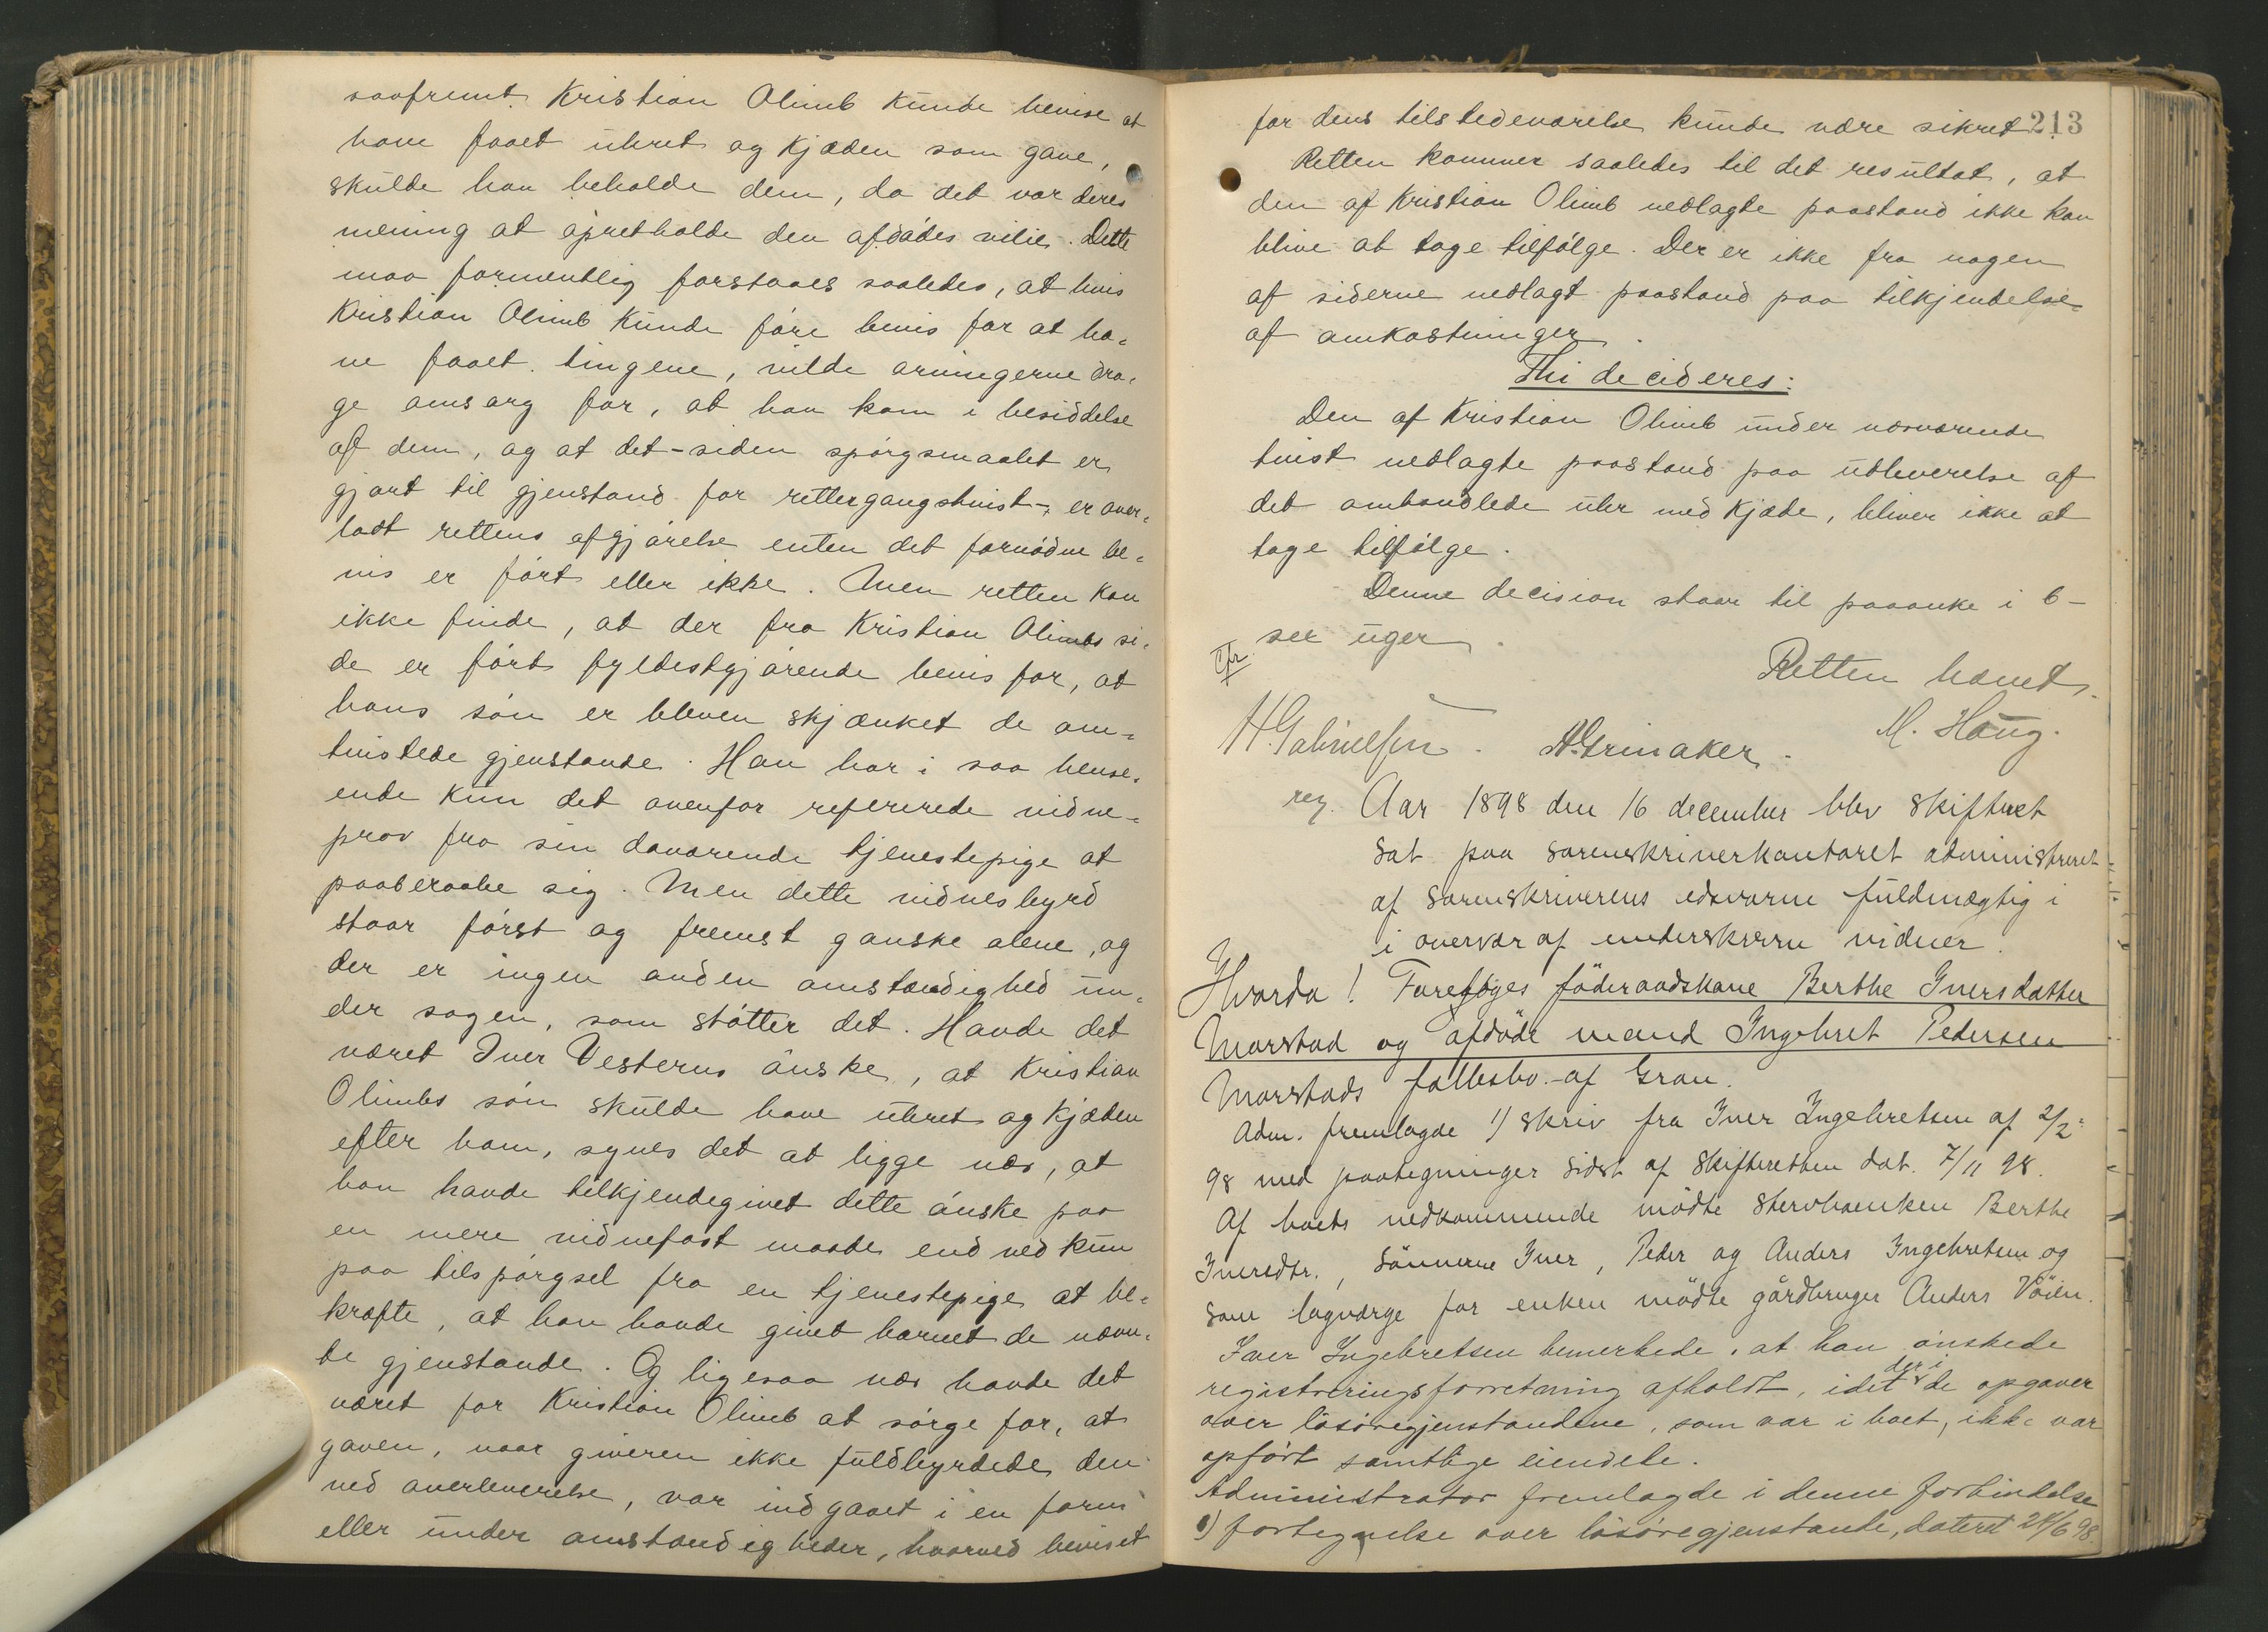 saafremt Kristian Olimb kunde bevise at
have faaet uhret og kjæden som gave,
skulde han beholde dem, da det var deres
mening at opretholde den afdødes vilie. Dette
maa formentlig forstaaes saaledes, at hvis
Kristian Olimb kunde føre bevis for at ha-
ve faaet tingene, vilde arvingerne dra-
ge omsorg for, at han kom i besiddelse
af dem, og at det - siden spørgsmaalet er
gjort til gjenstand for rettergangstvist -, er over-
ladt rettens afgjørelse enten det fornødne be-
vis er ført eller ikke. Men retten kan
ikke finde, at der fra Kristian Olimbs si-
de er ført fyldestgjørende bevis for, at
hans søn er bleven skjænket de om-
tvistede gjenstande. Han har i saa hense-
ende kun det ovenfor refererede vidne-
prov fra sin daværende tjenestepige at
paaberaabe sig. Men dette vidnesbyrd
staar først og fremst ganske alene, og
der er ingen anden omstændighed un-
der sagen, som støtter det. Havde det
været Iver Vesterns ønske, at Kristian
Olimbs søn skulde have uhret og kjæden
efter ham, synes det at ligge nær, at
han havde tilkjendegivet dette ønske paa
en mere vidnefast maade end ved kun
paa tilspørgsel fra en tjenestepige at be-
kræfte, at han havde givet barnet de nævn-
te gjenstande. Og ligesaa nær havde det
været for Kristian Olimb at sørge for, at
gaven, naar giveren ikke fuldbyrdede den
ved overleverelse, var indgaaet i en form
eller under omstændigheder, hvorved beviset
213
for dens tilstedeværelse kunde være sikret.
Retten kommer saaledes til det resultat, at
den af Kristian Olimb nedlagte paastand ikke kan
blive at tage tilfølge. Der er ikke fra nogen
af siderne nedlagt paastand paa tilkjendelse
af omkostninger.
Thi decideres:
Den af Kristian Olimb under nærværende
tvist nedlagte paastand paa udleverelse af
det omhandlede uhr med kjæde, bliver ikke at
tage tilfølge.
Denne decision staar til paaanke i 6 -
sex uger.
Cfr.
Retten hævet.
M. Haug.
H. Gabrielsen. A. Grinaker.
reg. Aar 1898 den 16 december blev skifteret
sat paa sorenskriverkontoret administreret
af sorenskriverens edsvorne fuldmægtig i
i overvær af underskrevne vidner.
Hvorda! Foretoges föderaadskone Berthe Iversdatter
Morstad og afdöde mand Ingebret Pedersen
Morstads fællesbo af Gran.
Adm. fremlagde 1) skriv fra Iver Ingebretsen af 2/2
98 med paategninger sidst af skifteretten dat. 7/11 98.
Af boets vedkommende mödte stervboenken Berthe
Iversdtr., sönnerne Iver, Peder og Anders Ingebretsen og
som lagværge for enken mödte gårdbruger Anders Vöien.
Iver Ingebretsen bemerkede, at han ønskede
registreringsforretning afholdt, idet der i de opgaver
over løsøregjenstandene, som var i boet, ikke var
opført samtlige eiendele.
Administrator fremlagde i denne forbindelse
fortegnelse over løsøregjenstande, dateret 24/6 98.